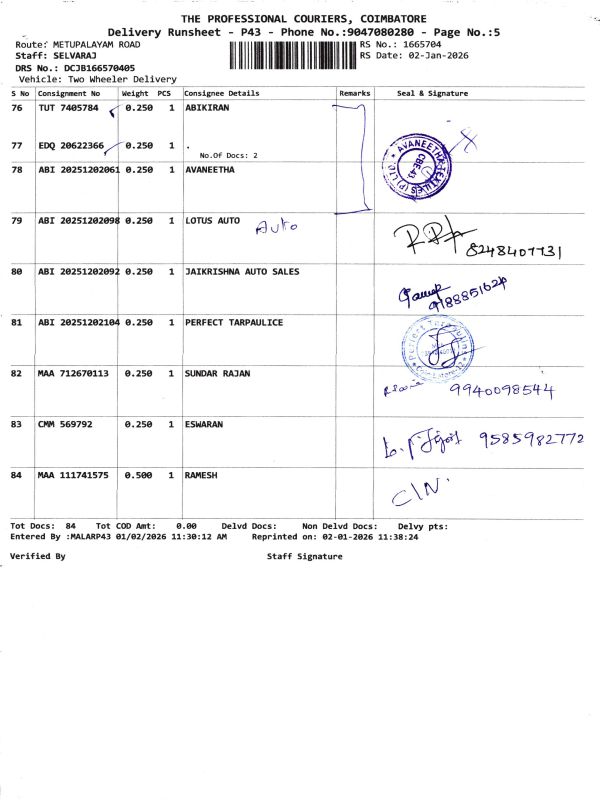 THE PROFESSIONAL COURIERS, COIMBATORE
Delivery Runsheet - P43 - Phone No.:9047080280 - Page No.:5
Route: METUPALAYAM ROAD RS No.: 1665704
Staff: SELVARAJ RS Date: 02-Jan-2026
DRS No.: DCJB166570405
Vehicle: Two Wheeler Delivery
S No Consignment No Weight PCS Consignee Details Remarks Seal & Signature
76 TUT 7405784 0.250 1 ABIKIRAN
77 EDQ 20622366 0.250 1 .
No.Of Docs: 2
78 ABI 20251202061 0.250 1 AVANEETHA
AVANEETHA TEXTILES (P) LTD. CBE-43
79 ABI 20251202098 0.250 1 LOTUS AUTO
Auto
8248407731
80 ABI 20251202092 0.250 1 JAIKRISHNA AUTO SALES
81 ABI 20251202104 0.250 1 PERFECT TARPAULICE
Perfect
82 MAA 712670113 0.250 1 SUNDAR RAJAN
9940098544
83 CMM 569792 0.250 1 ESWARAN
9585982772
84 MAA 111741575 0.500 1 RAMESH
C/N.
Tot Docs: 84 Tot COD Amt: 0.00 Delvd Docs: Non Delvd Docs: Delvy pts:
Entered By :MALARP43 01/02/2026 11:30:12 AM Reprinted on: 02-01-2026 11:38:24
Verified By Staff Signature